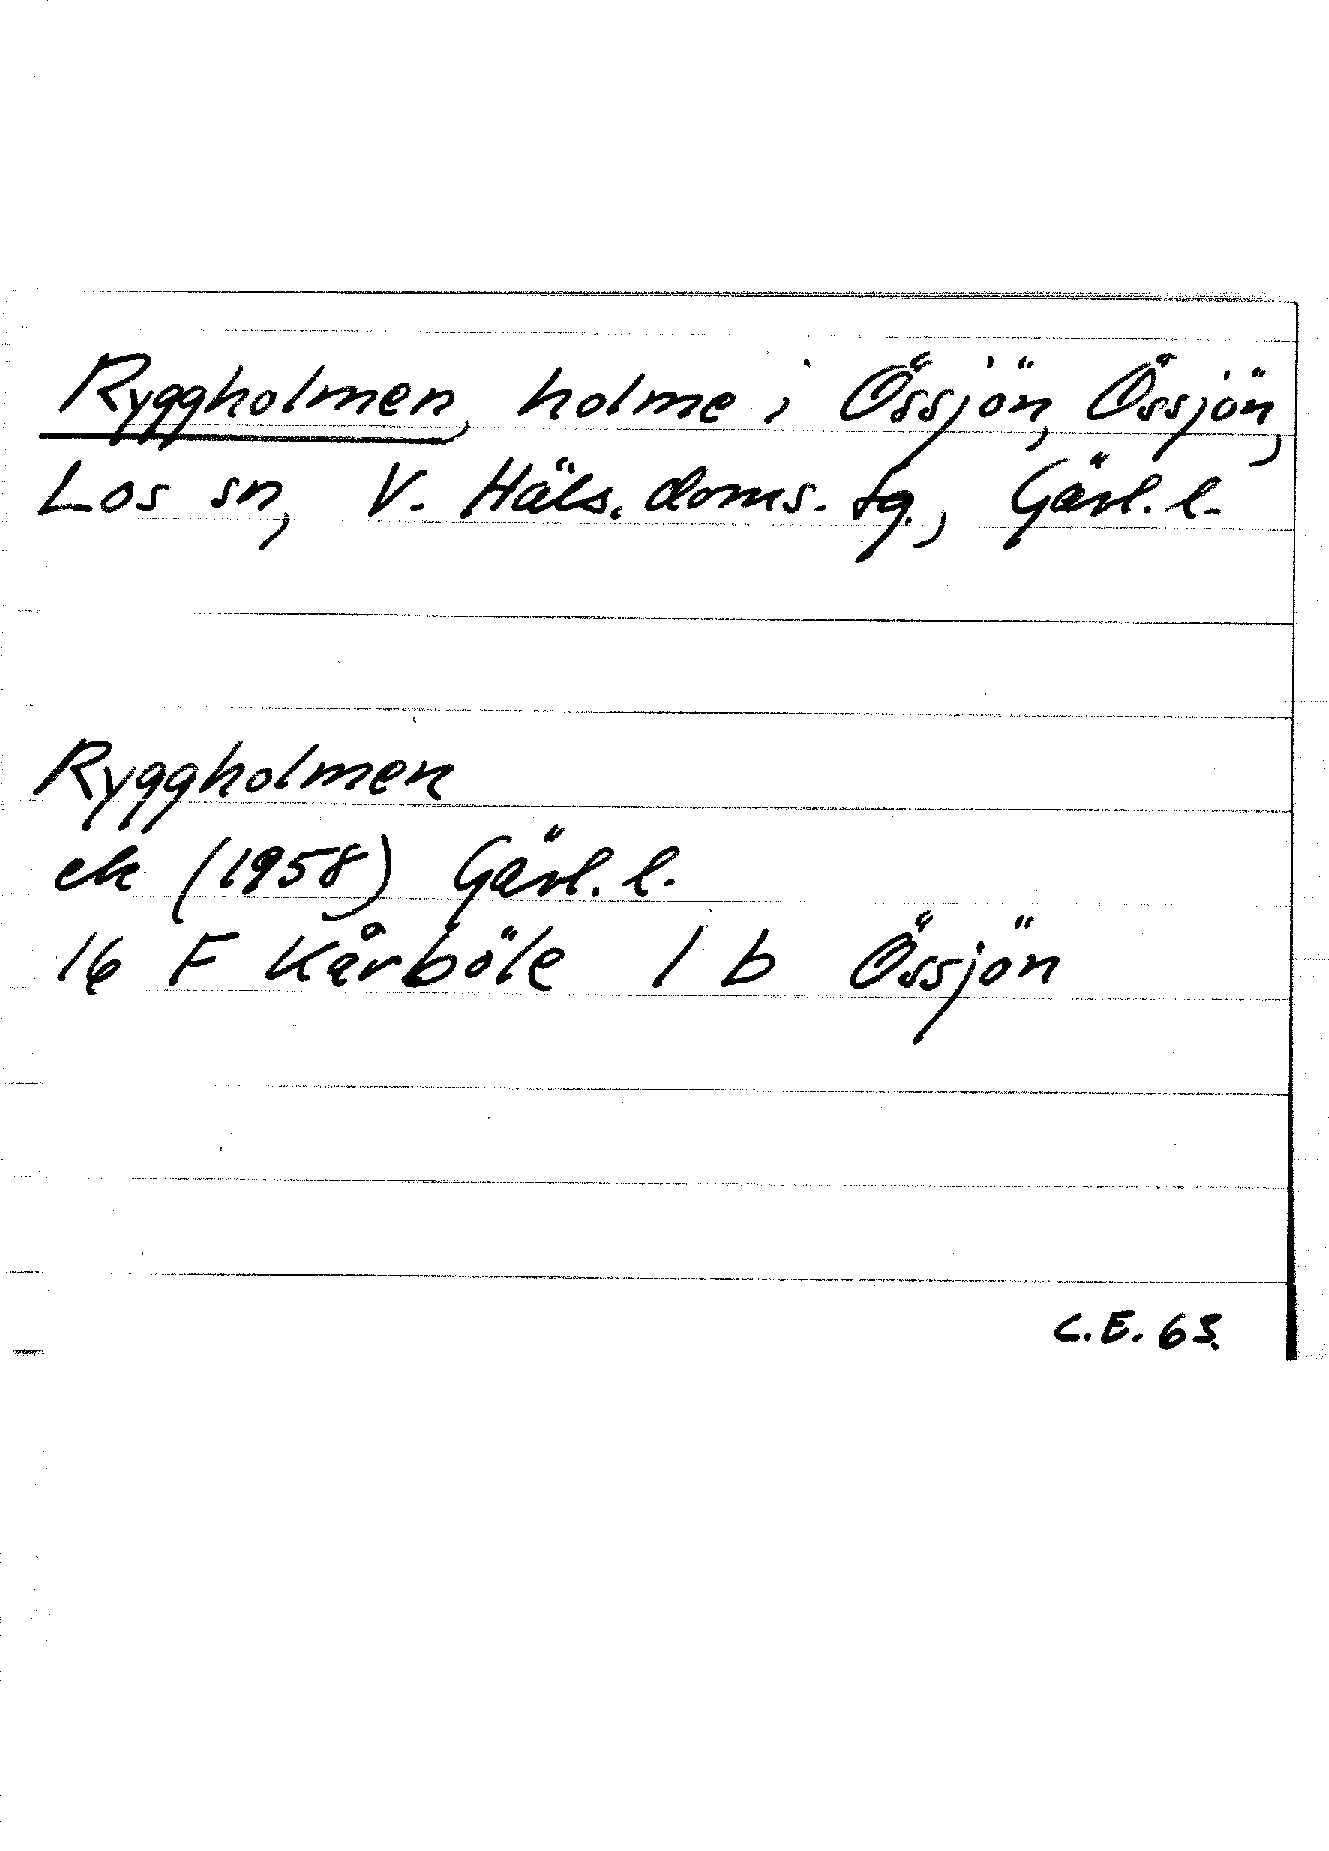 Ryggholmen, holme i Össjön, Össjön,
Los sn, V. Häls. doms. tg., Gävl. l.
Ryggholmen
ek (1958) Gävl. l.
16 F Kårböle 1 b Össjön
C.E. 63.